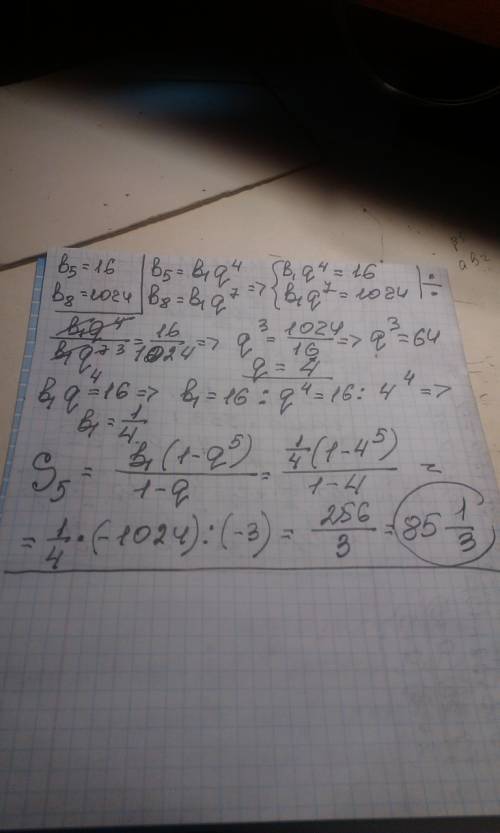 b₅ = 16 | b₅ = b₁q⁴ => { b₁q⁴ = 16 | ÷
b₈ = 1024 | b₈ = b₁q⁷ { b₁q⁷ = 1024
b₁q⁴/b₁q⁷ ³ = 16/1024 => q³ = 1024/16 => q³ = 64
q = 4
b₁q⁴ = 16 => b₁ = 16 : q⁴ = 16 : 4⁴ =>
b₁ = 1/4.
S₅ = b₁(1-q⁵)/1-q = 1/4(1-4⁵)/1-4 =
= 1/4 · (-1024) : (-3) = 256/3 = 85 1/3